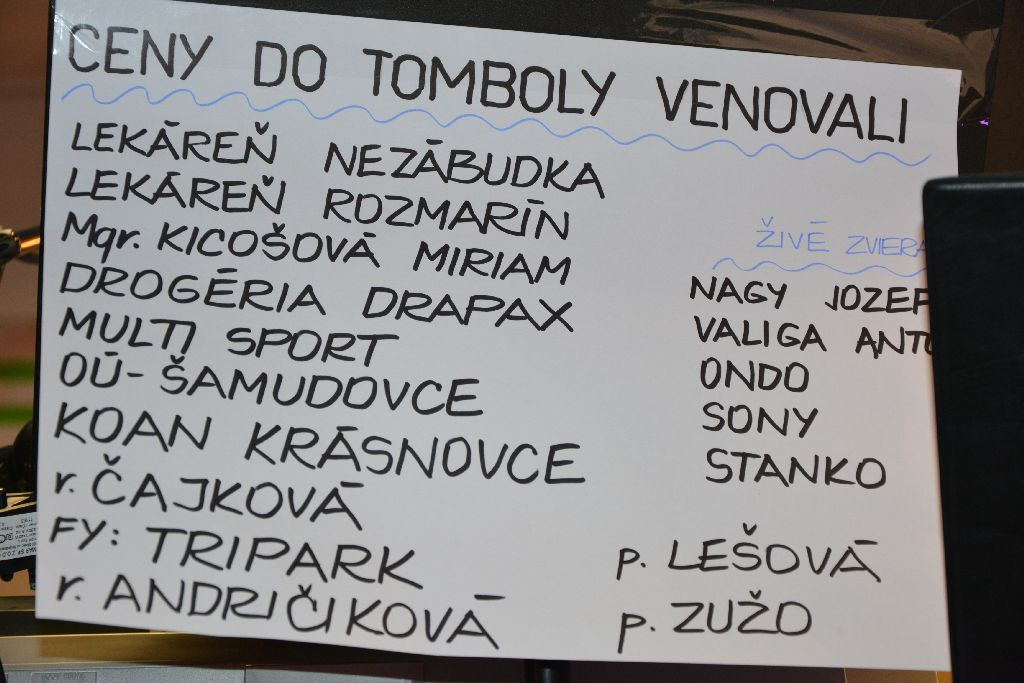 CENY DO TOMBOLY VENOVALI
LEKÁREŇ NEZÁBUDKA
LEKÁREŇ ROZMARÍN
Mgr. KICOŠOVÁ MIRIAM
DROGÉRIA DRAPAX
MULTI SPORT
OÚ- ŠAMUDOVCE
KOAN KRÁSNOVCE
r. ČAJKOVÁ
FY: TRIPARK
r. ANDRIČIKOVÁ
ŽIVÉ ZVIERA
NAGY JOZEF
VALIGA ANTO
ONDO
SONY
STANKO
p. LEŠOVÁ
p. ZUŽO